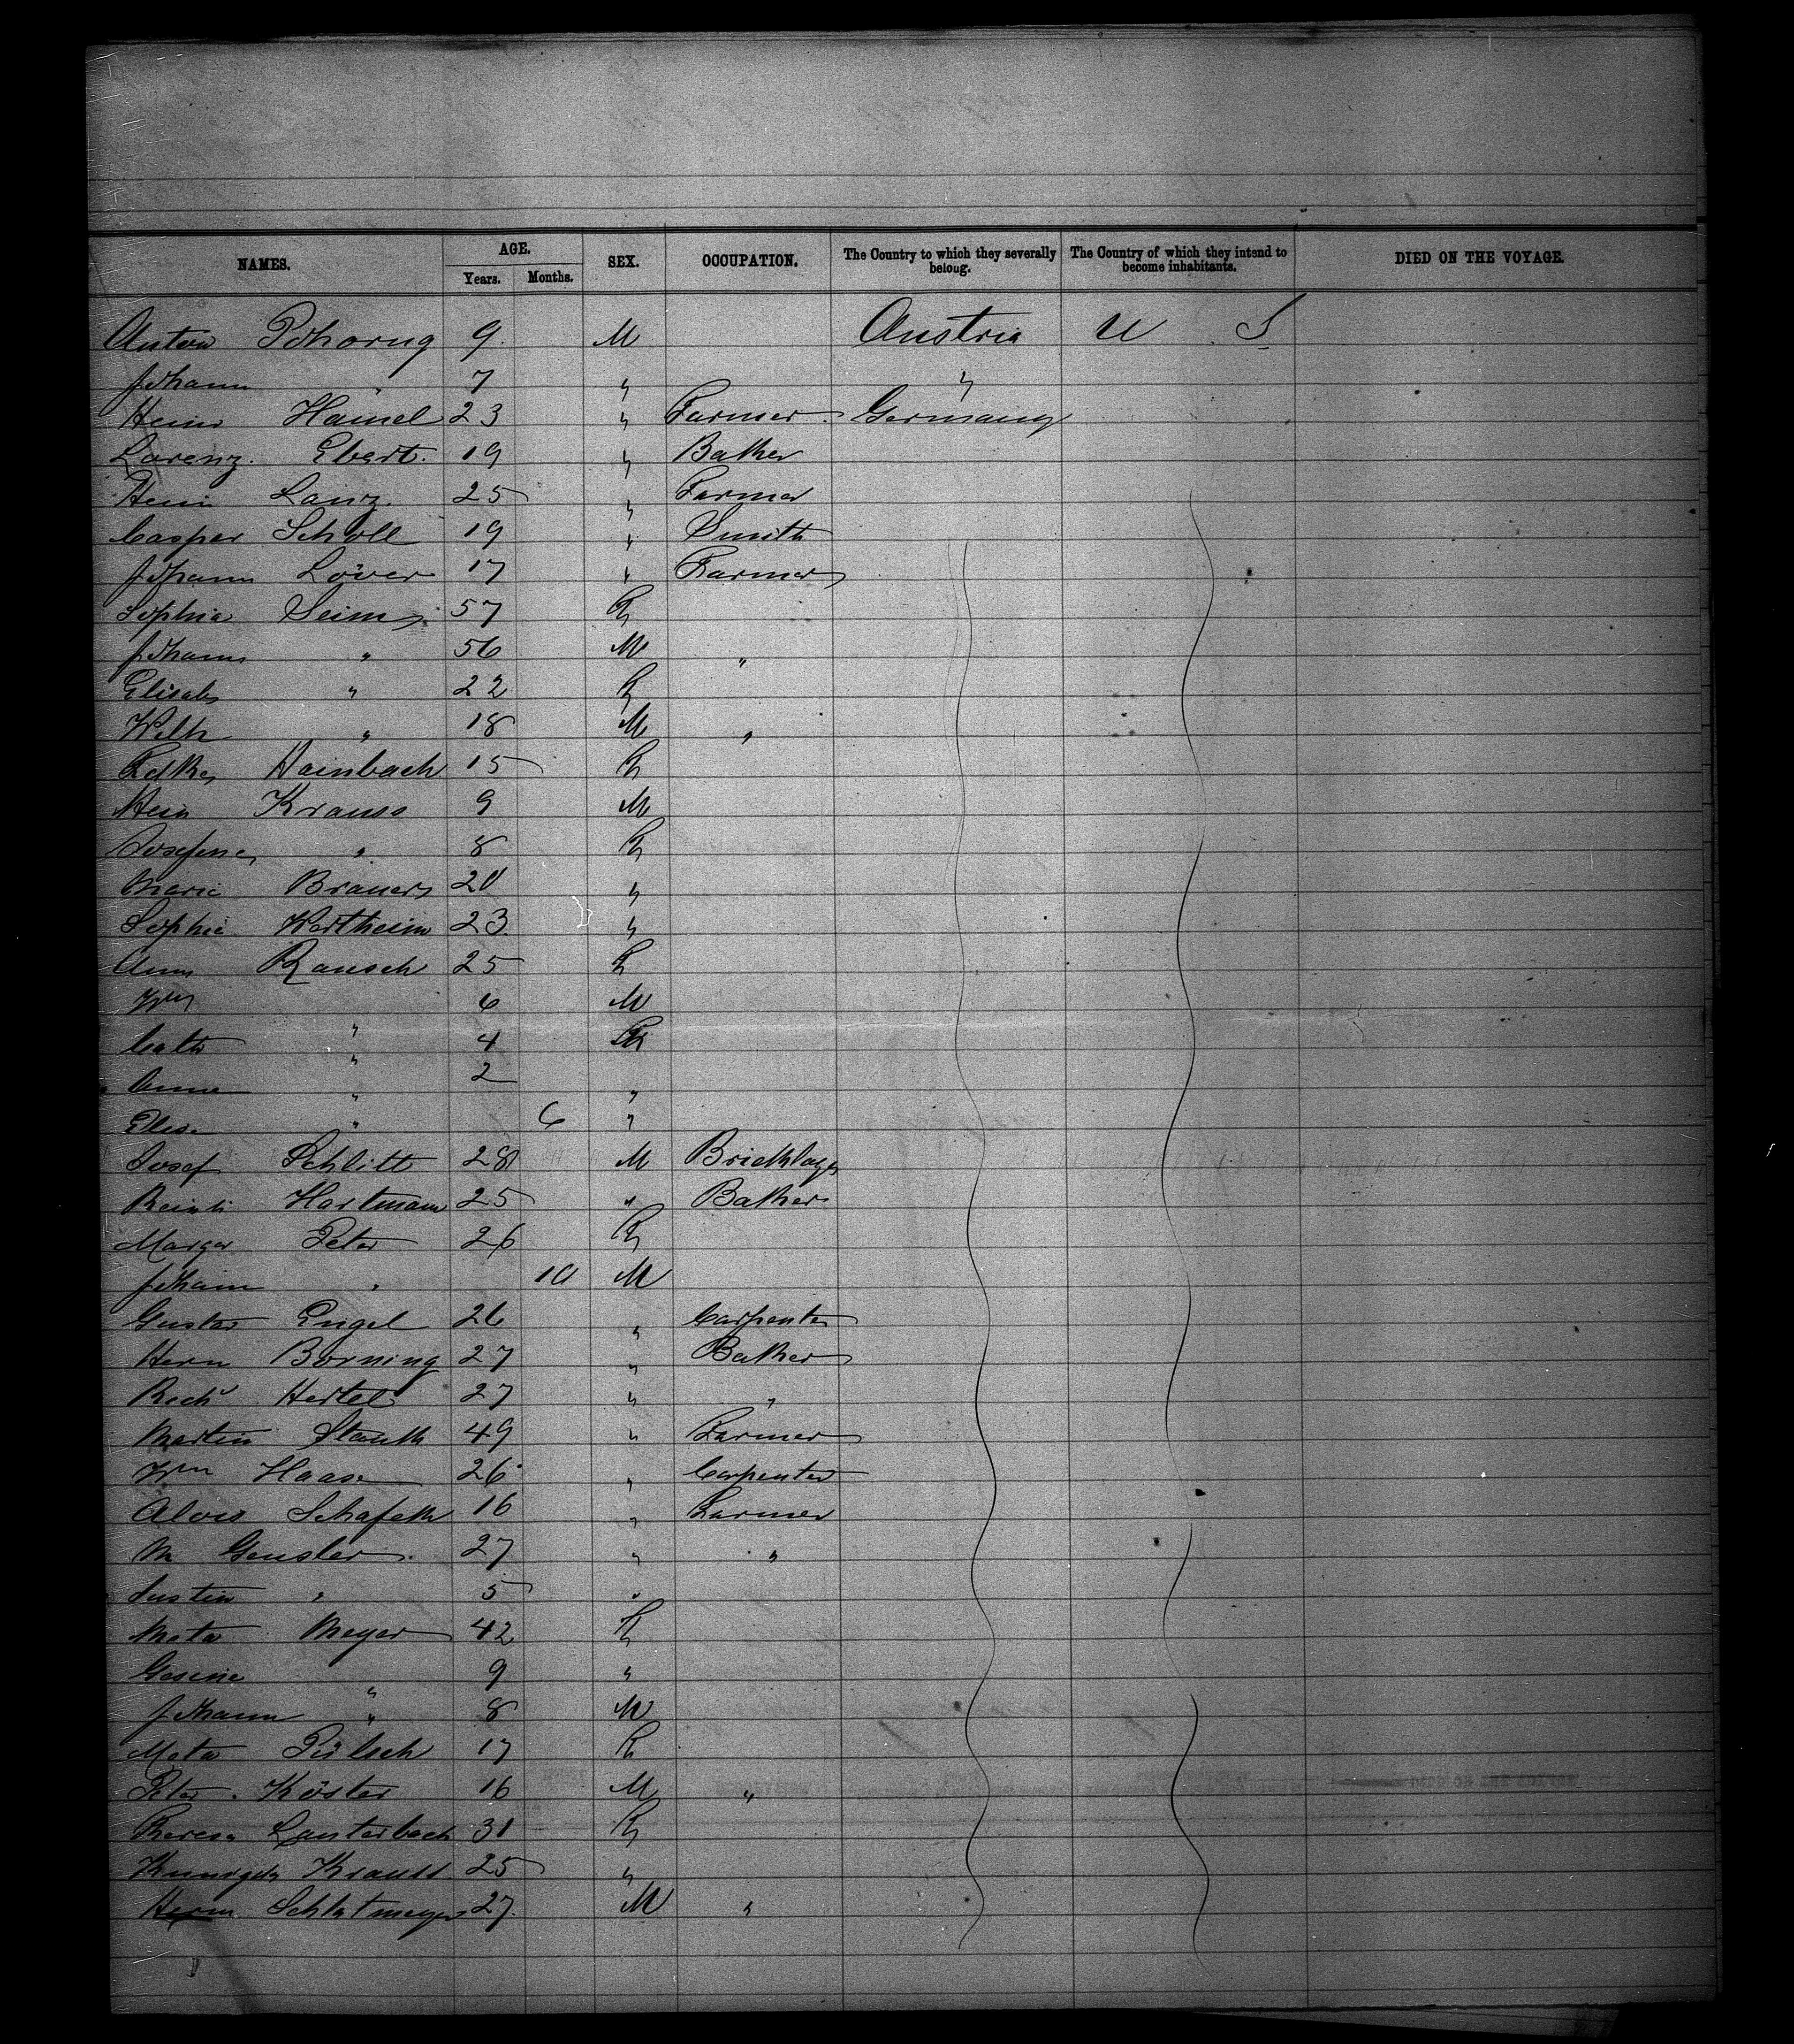 NAMES. AGE. SEX. OCCUPATION. The Country to which they severally belong. The Country of which they intend to become inhabitants. DIED ON THE VOYAGE.
Years. Months.
Anton Pohorny 9 M Austria U S
Johann " 7 " "
Heinr Hamel 23 " Farmer Germany
Lorenz Ebert 19 " Baker
Heinr Lanz 25 " Farmer
Casper Scholl 19 " Smith
Johann Löver 17 " Farmer
Sophia Seim 57 F
Johann " 56 M "
Elisab " 22 F
Wilh " 18 M "
Hainbach 15 F
Hein Krauss 9 M
Josefine " 8 F
Marie Brauer 20 "
Sophie Wertheim 23 "
Anna Rausch 25 F
Wm " 6 M
Cath " 4 F
Anna " 2 "
Elise " 6 "
Josef Schlitt 28 M Bricklayer
Reinh Hartmann 25 " Baker
Margar Peter 26 F
Johann " 10 M
Gustav Engel 26 " Carpenter
Herm Borning 27 " Baker
Rich Hertel 27 " "
Martin Stauth 49 " Farmer
Wm Haase 26 " Carpenter
Alois Schafeth 16 " Farmer
M Gensler 27 " "
Justin " 5 "
Meta Meyer 42 F
Gesine " 9 "
Johann " 8 M
Meta Pülsch 17 F
Peter Köster 16 M "
Theresa Lauterbach 31 F
Krauss 25 "
Herm Schlatmeyer 27 M "